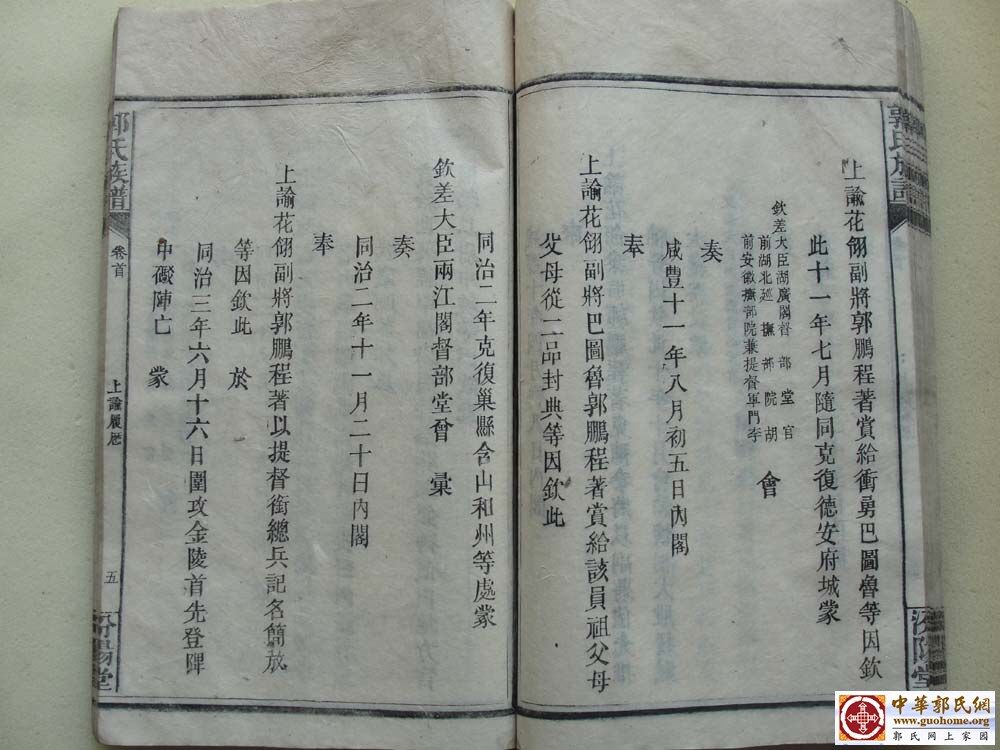 郭氏族譜
上諭花翎副將郭鵬程著賞給衝勇巴圖魯等因欽
此十一年七月隨同克復德安府城蒙
欽差大臣湖廣閣督部堂官
前湖北巡撫部院胡
前安徽撫部院兼提督軍門李
會
奏
咸豐十一年八月初五日內閣
奉
上諭花翎副將巴圖魯郭鵬程著賞給該員祖父母
父母從二品封典等因欽此
汾陽堂
同治二年克復巢縣含山和州等處蒙
欽差大臣兩江閣督部堂曾 彙
奏
同治二年十一月二十日內閣
奉
上諭花翎副將郭鵬程著以提督銜總兵記名簡放
等因欽此 於
同治三年六月十六日圍攻金陵首先登陴
中礮陣亡 蒙
郭氏族譜
卷首
上諭履歷
五
汾陽堂
中華郭氏網
www.guohome.org
郭氏網上家園